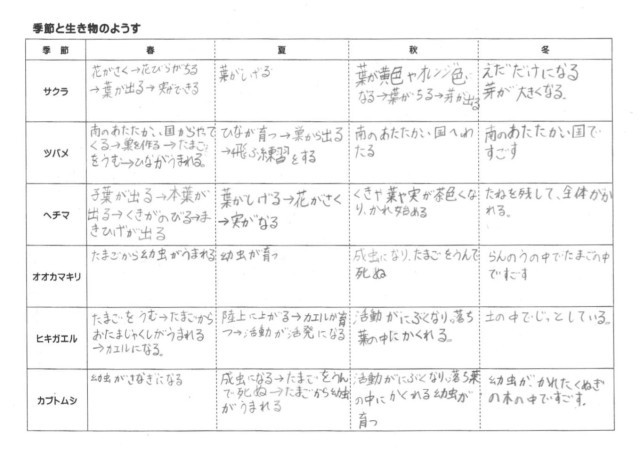 季節と生き物のようす
季　節　春　夏　秋　冬
サクラ
花がさく→花びらがちる
→葉が出る→実ができる
葉がしげる
葉が黄色やオレンジ色に
なる→葉がちる→芽が出る
えだだけになる
芽が大きくなる。
ツバメ
南のあたたかい国からやって
くる→巣を作る→たまご
をうむ→ひながうまれる。
ひなが育つ→巣から出る
→飛ぶ練習をする
南のあたたかい国へわ
たる
南のあたたかい国で
すごす
ヘチマ
子葉が出る→本葉が
出る→くきがのびる→ま
きひげが出る
葉がしげる→花がさく
→実がなる
くきや葉や実が茶色くな
り、かれ始める
たねを残して、全体がか
れる。
オオカマキリ
たまごから幼虫がうまれる
幼虫が育つ
成虫になり、たまごをうんで
死ぬ
らんのうの中でたまごの中
ですごす
ヒキガエル
たまごをうむ→たまごから
おたまじゃくしがうまれる
→カエルになる。
陸上に上がる→カエルが育
つ→活動が活発になる
活動がにぶくなり。落ち
葉の中にかくれる。
土の中でじっとしている。
カブトムシ
幼虫がさなぎになる
成虫になる→たまごをうん
で死ぬ→たまごから幼虫
がうまれる
活動がにぶくなり。落ち葉
の中にかくれる幼虫が
育つ
幼虫が、かれたくぬぎ
の木の中ですごす。